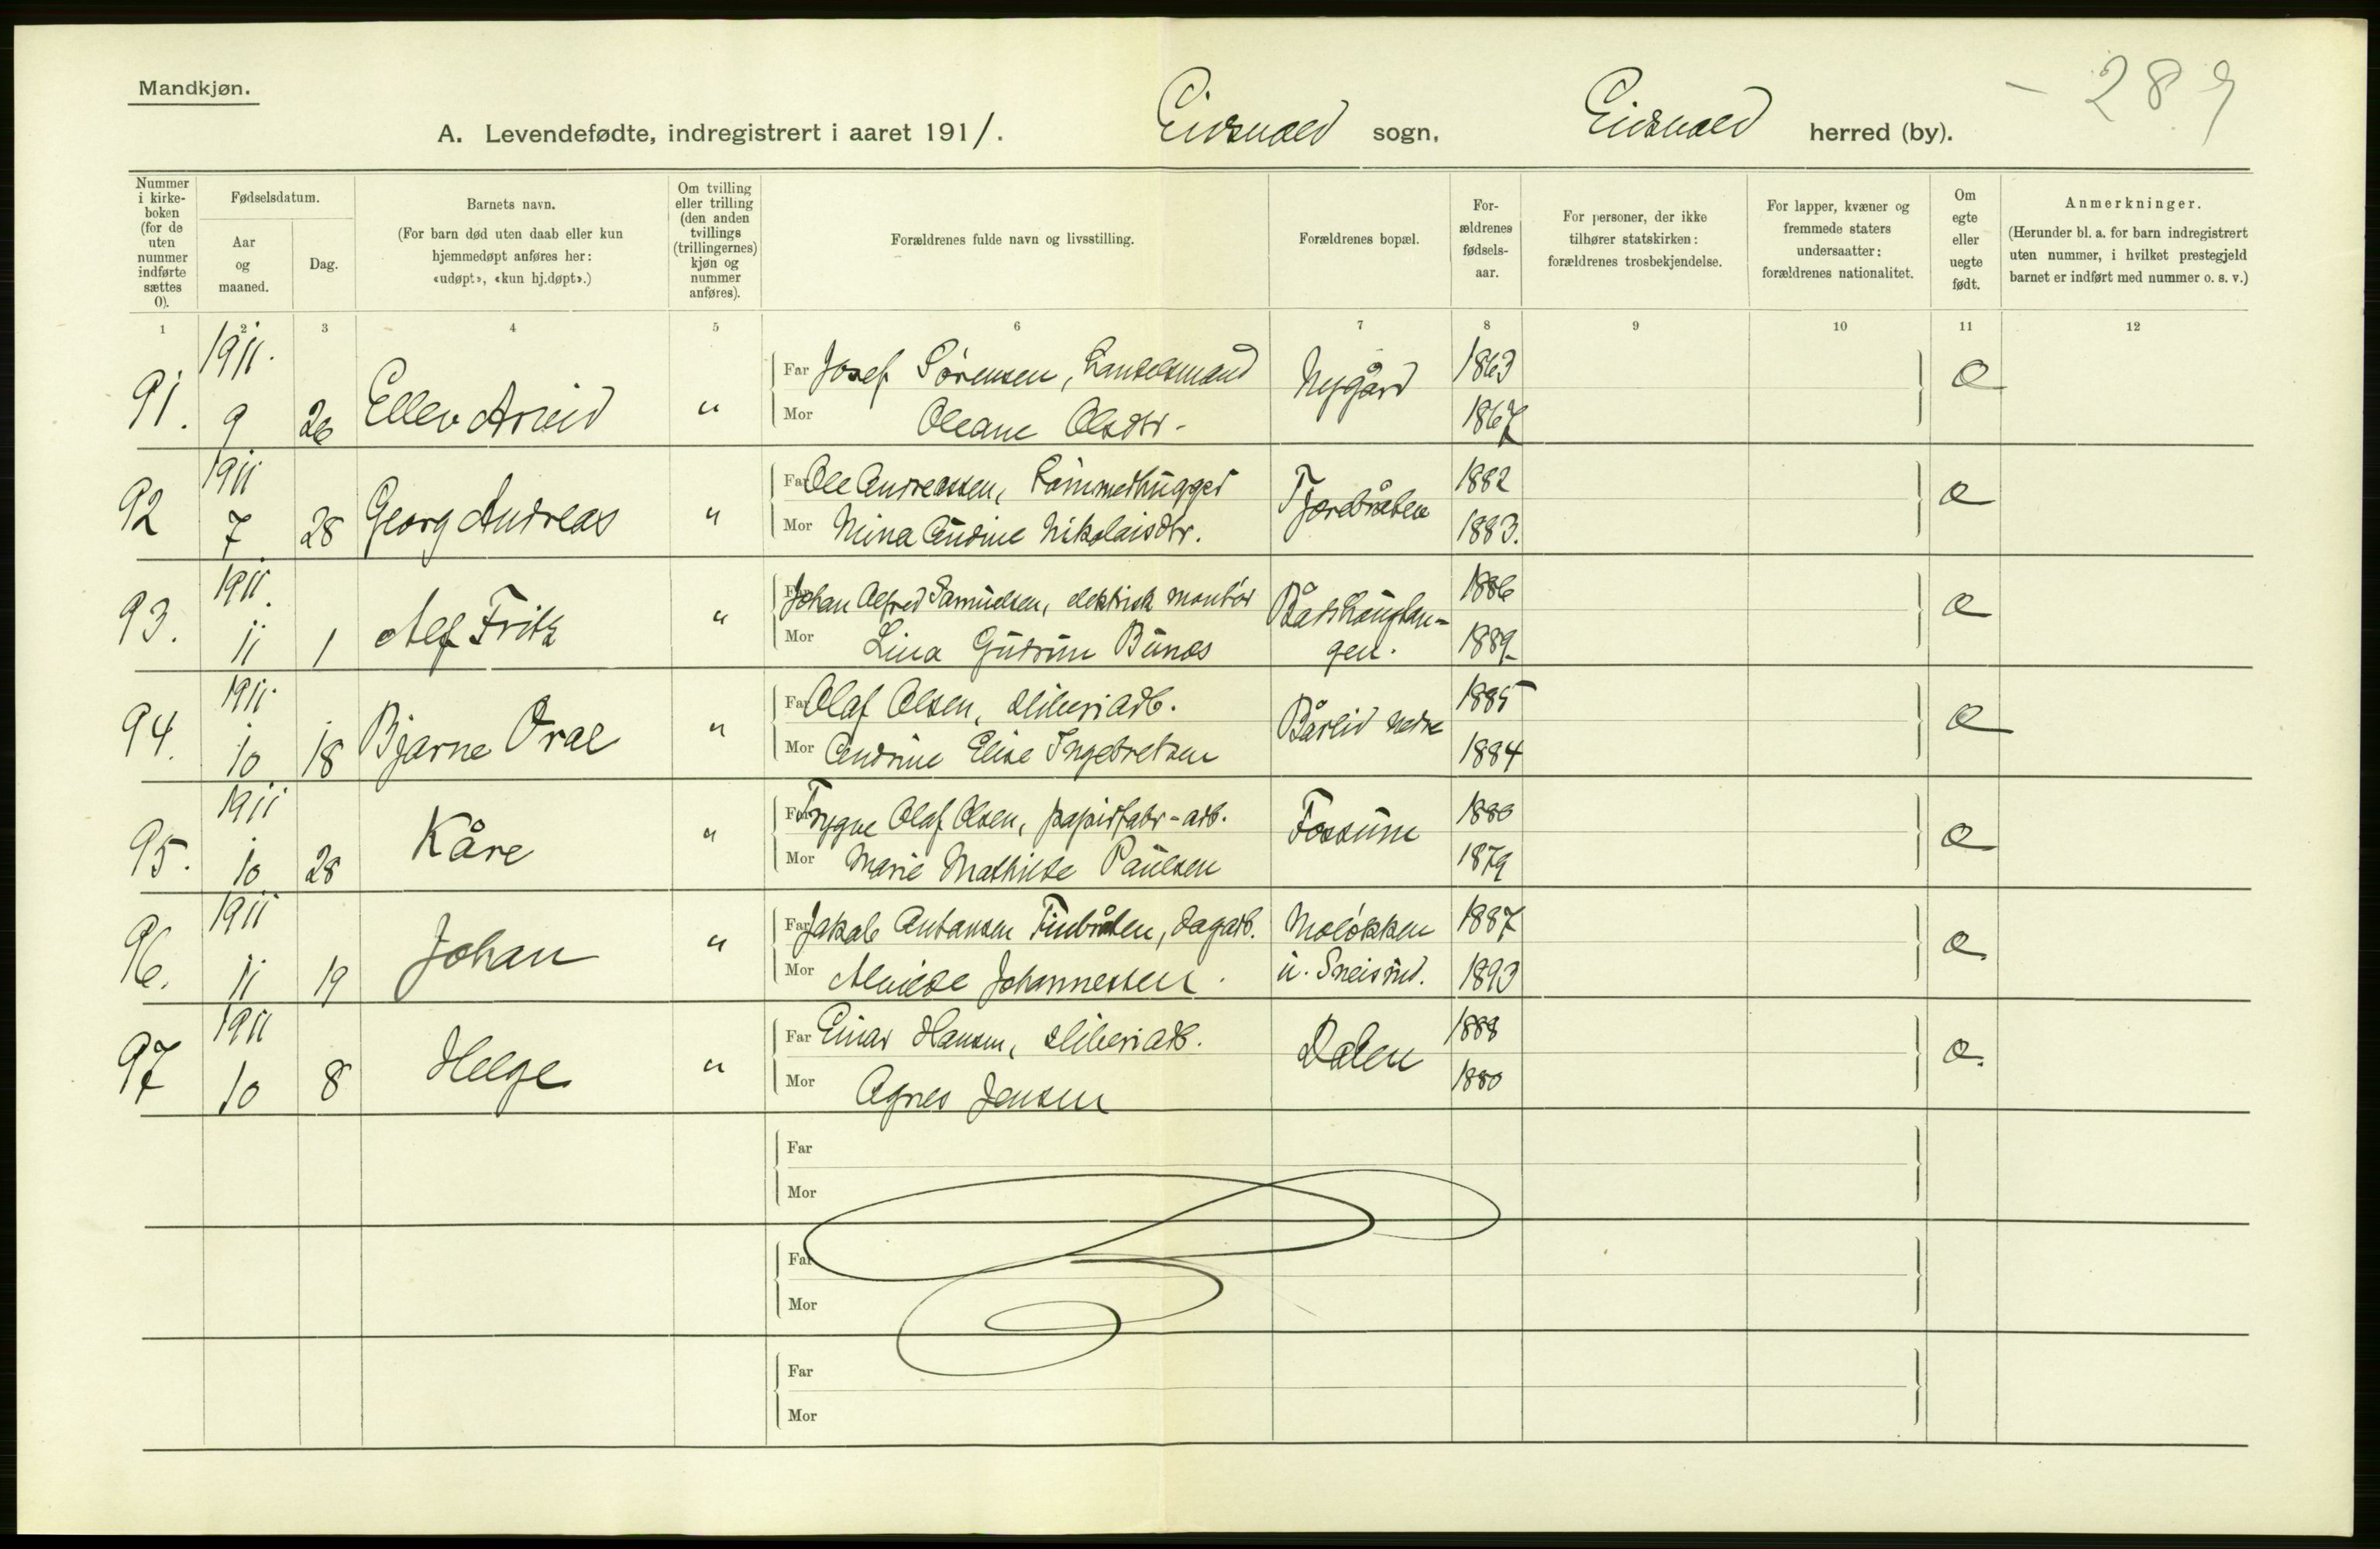 Mandkjøn.
- 289
A. Levendefødte, indregistrert i aaret 1911. Eidsvold sogn, Eidsvold herred (by).
Nummer i kirke- boken (for de uten nummer indførte sættes 0).
Fødselsdatum.
Aar og maaned.
Dag.
Barnets navn.
(For barn død uten daab eller kun hjemmedøpt anføres her: «udøpt», «kun hj.døpt».)
Om tvilling eller trilling (den anden tvillings (trillingernes) kjøn og nummer anføres).
Forældrenes fulde navn og livsstilling.
Forældrenes bopæl.
For- ældrenes fødsels- aar.
For personer, der ikke tilhører statskirken: forældrenes trosbekjendelse.
For lapper, kvæner og fremmede staters undersaatter: forældrenes nationalitet.
Om egte eller uegte født.
Anmerkninger.
(Herunder bl. a. for barn indregistrert uten nummer, i hvilket prestegjeld barnet er indført med nummer o. s. v.)
1 2 3 4 5 6 7 8 9 10 11 12
91. 1911. 9 26 Ellev Arvid " Far Josef Sørensen, Handelsmand Nygård 1863 e
Mor Oleane Olsdtr. 1867
92 1911 7 28 Georg Andreas " Far Ole Andreassen, tømmerhugger 1882 e
Mor Mina Andine Nikolaisdtr. 1883.
93. 1911. 11 1 Alf Fritz " Far Johan Alfred Samuelsen, elektrisk montør Bårdshaugtan- 1886 e
Mor Lina Gudrun Bunæs gen. 1889
94. 1911. 10 18 Bjarne Oral " Far Olaf Olsen, sliberiarb. Bårlid nedre 1885 e
Mor Andrine Elise Ingebretsen 1884
95. 1911 10 28 Kåre " Far Trygve Olaf Olsen, papirfabr-arb. Fossum 1880 e
Mor Marie Mathilde Paulsen 1879
96. 1911 11 19 Johan " Far Jakob Antonsen Finbråten, dagarb. Moløkken 1887 e
Mor Alvilde Johannessen. u. Sneisrud. 1893
97 1911 10 8 Helge " Far Einar Hansen, sliberiarb. Dalen 1888 e.
Mor Agnes Jensen 1880
Far
Mor
Far
Mor
Far
Mor